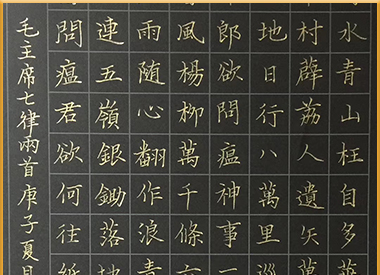 水青山枉自多
村薜荔人遺矢
地日行八萬里巡
郎欲問瘟神事一
風楊柳萬千條六
雨随心翻作浪青
連五嶺銀鋤落地
問瘟君欲何往紙
毛主席七律兩首庚子夏